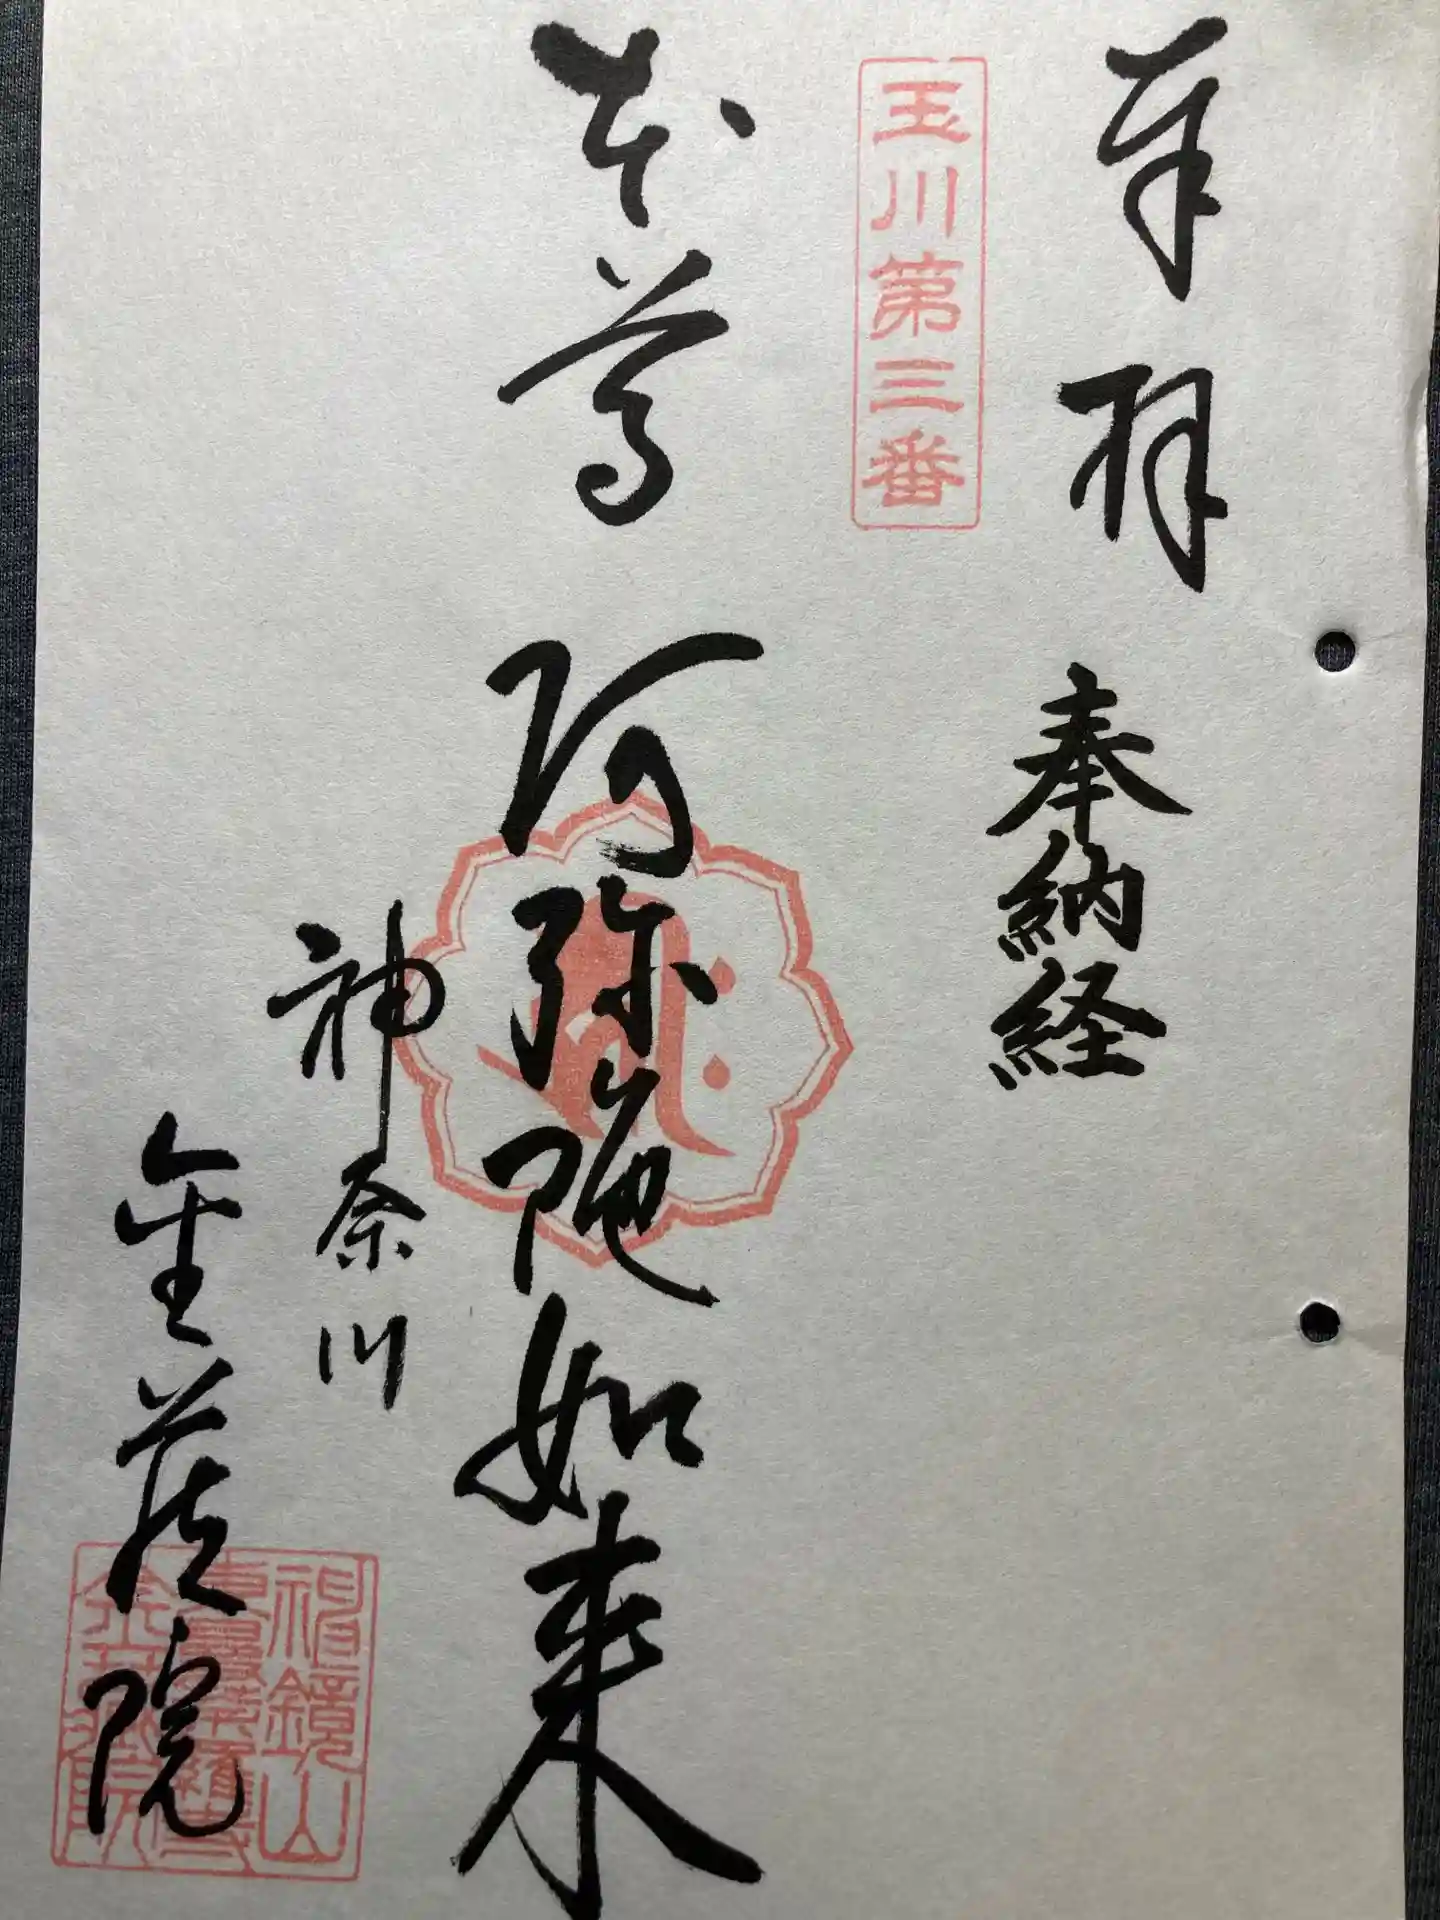 奉拝
奉納経
玉川第三番
本尊 阿弥陀如来
神奈川
金蔵院
神鏡山
金蔵院